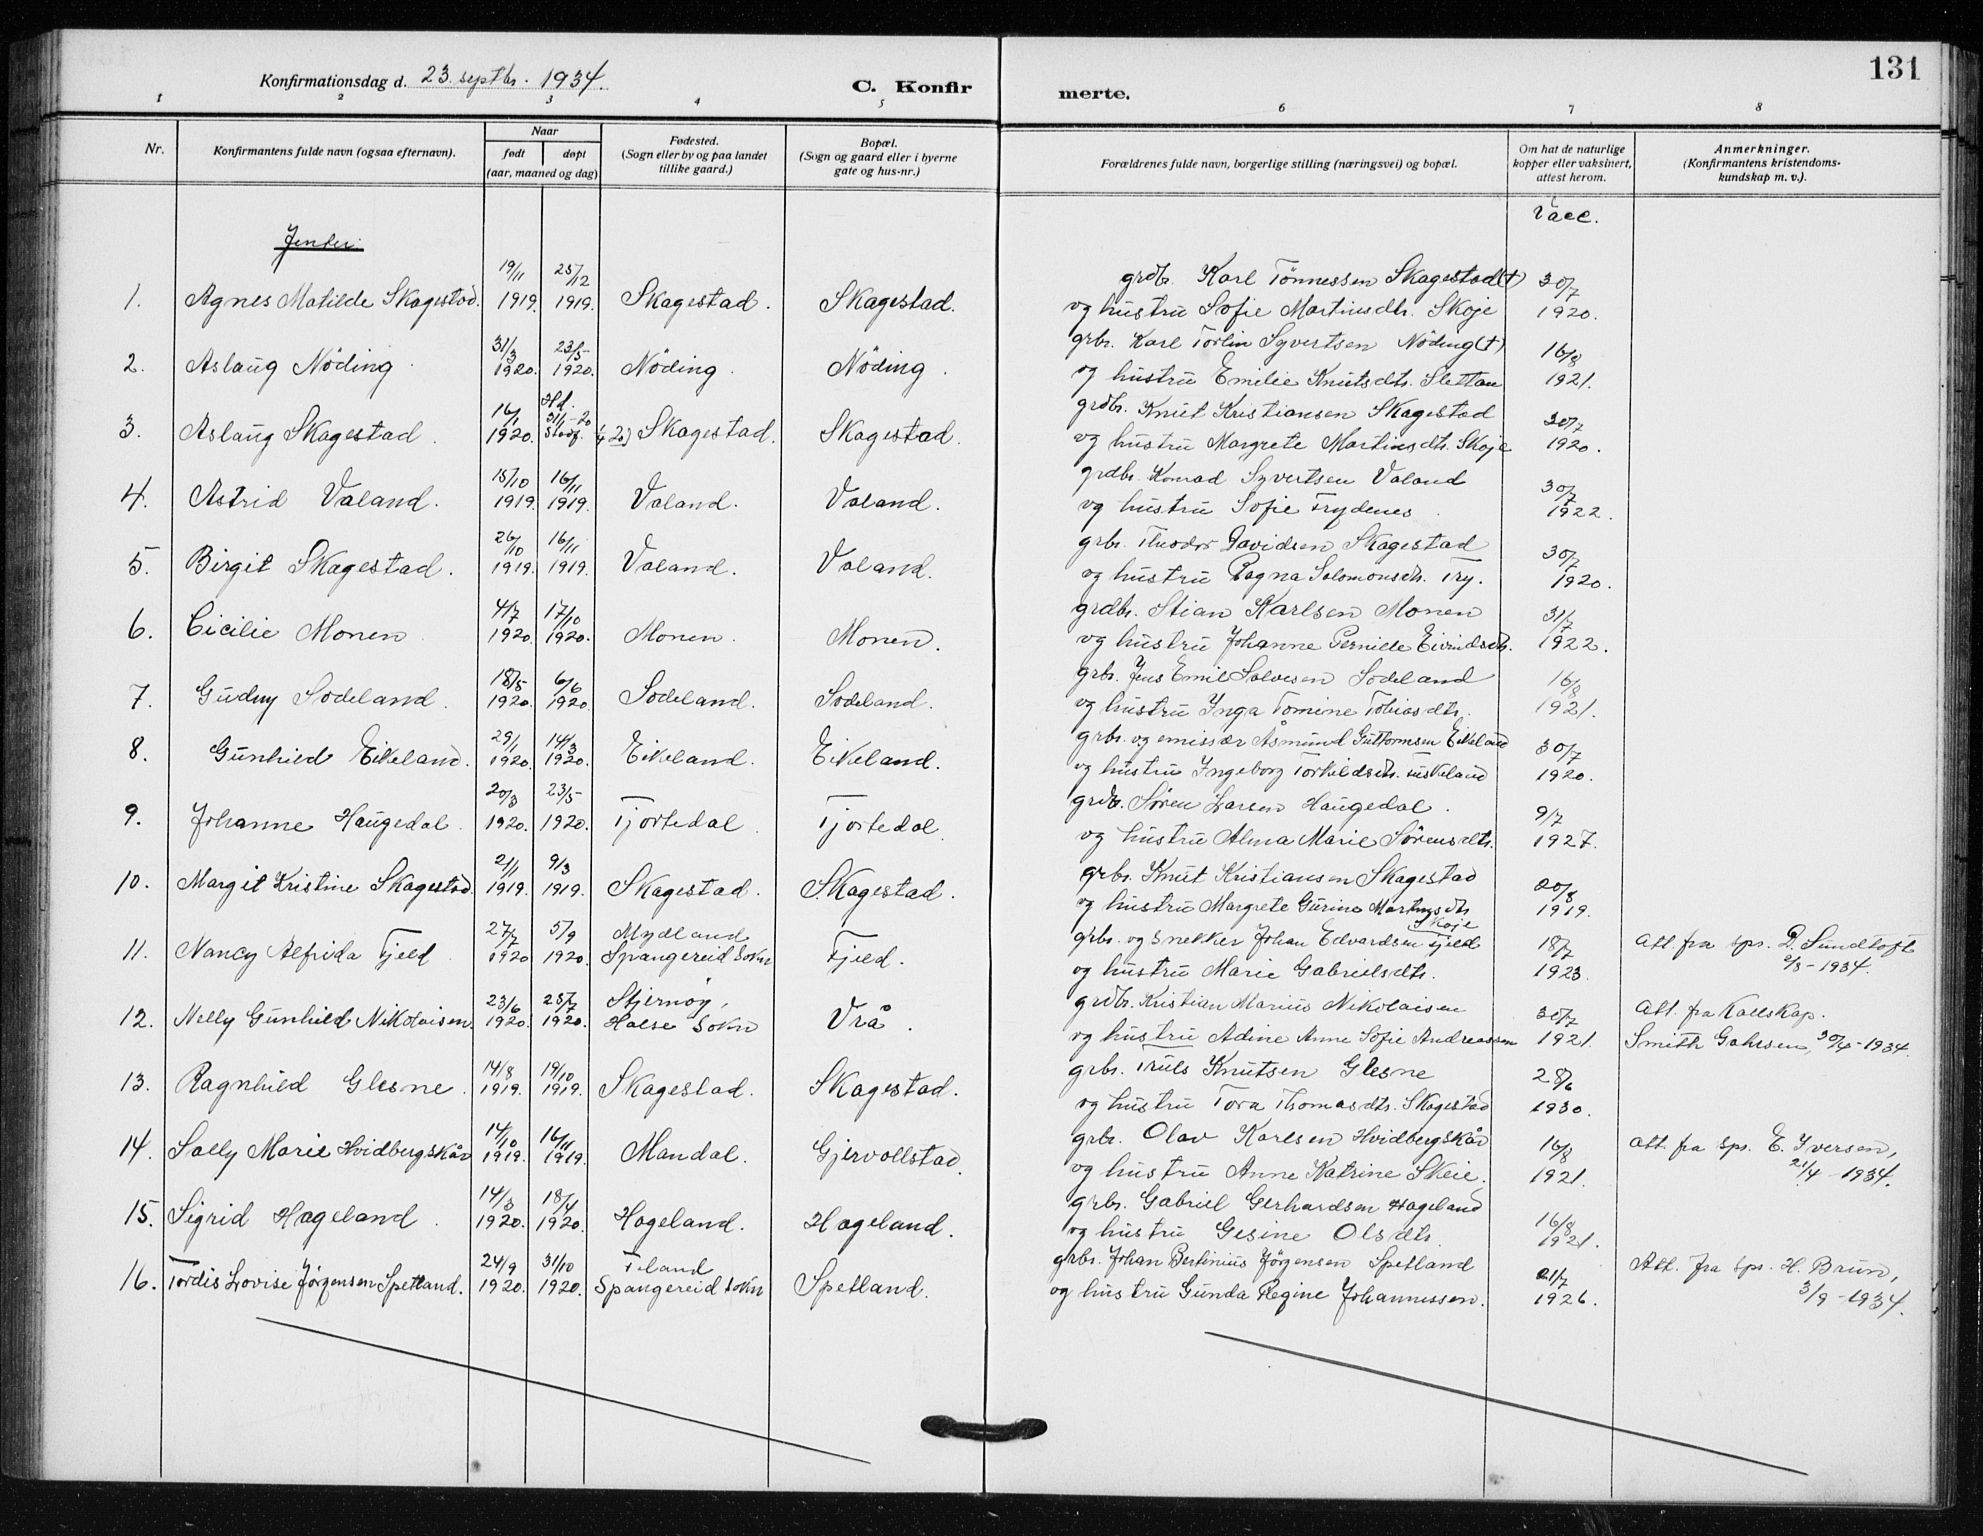 131
Konfirmationsdag d. 23. septbr. 1934.
C. Konfir merte.
1 2 3 4 5 6 7 8
Nr.
Konfirmantens fulde navn (ogsaa efternavn).
Naar
født døpt
(aar, maaned og dag)
Fødested.
(Sogn eller by og paa landet
tillike gaard.)
Bopæl.
(Sogn og gaard eller i byerne
gate og hus-nr.)
Forældrenes fulde navn, borgerlige stilling (næringsvei) og bopæl.
Om hat de naturlige
kopper eller vaksinert,
attest herom.
Anmerkninger.
(Konfirmantens kristendoms-
kundskap m. v.).
Vacc.
Jenter:
19/11 25/12 grdbr. Karl Tönnessen Skagestad (†) 30/7
1. Agnes Matilde Skagestad. 1919. 1919. Skagestad. Skagestad. og hustru Sofie Martinsdtr. Skoje 1920.
31/3 23/5 grbr. Karl Torlin Syvertsen Nöding (†) 16/8
2. Aslaug Nöding. 1920. 1920. Nöding. Nöding. og hustru Emilie Knutsdtr. Slettan 1921.
16/1 Hd. 31/1-20 grdbr. Knut Kristiansen Skagestad 30/7
3. Aslaug Skagestad. 1920. Stadf. 1/4 20) Skagestad. Skagestad. og hustru Margrete Martinsdtr. Skoje 1920.
15/10 16/11 grdbr. Konrad Syvertsen Valand 30/7
4. Astrid Valand. 1919. 1919. Valand. Valand. og hustru Sofie Trydenes. 1922.
26/10 16/11 grbr. Theodor Davidsen Skagestad 30/7
5. Birgit Skagestad. 1919. 1919. Valand. Valand. og hustru Ragna Salomonsdtr. Try. 1920.
4/7 17/10 grdbr. Stian Karlsen Monen 31/7
6. Cicilie Monen. 1920. 1920. Monen. Monen. og hustru Johanne Pernille Eivindsdtr. 1922.
18/5 6/6 grbr. Jens Emil Salvesen Sodeland 16/8
7. Gudny Sodeland. 1920. 1920. Sodeland. Sodeland. og hustru Inga Tomine Tobiasdtr. 1921.
29/1 14/3 grbr. og emissær Åsmund Guttormsen Eikeland 30/7
8. Gunhild Eikeland. 1920. 1920. Eikeland. Eikeland. og hustru Ingeborg Torkildsdtr. 1920.
20/3 23/5 grdbr. Søren Larsen Haugedal. 9/7
9. Johanne Haugedal. 1920. 1920. Tjortedal. Tjortedal. og hustru Alma Marie Sörensdtr. 1927.
2/1 9/3 grbr. Knut Kristiansen Skagestad 20/8
10. Margit Kristine Skagestad. 1919. 1919. Skagestad. Skagestad. og hustru Margrete Gurine Martinsdtr. Skoje 1919.
27/7 5/9 Mydland grbr. og snekker Johan Edvardsen Fjeld 18/7 Att. fra spr. D. Sundtoft
11. Nancy Alfrida Fjeld. 1920 1920. Spangereid sokn Fjeld. og hustru Marie Gabrielsdtr. 1923. 2/3-1934.
23/6 25/7 Stjernöy, grdbr. Kristian Marius Nikolaisen 30/7 Att. fra Kallskap.
12. Nelly Gunhild Nikolaisen. 1920. 1920. Halse sokn Vrå. og hustru Adine Anne Sofie Andreassen 1921. Smith Gahrsen, 30/4-1934.
14/8 19/10 grbr. Truls Knutsen Glesne 28/6
13. Ragnhild Glesne. 1919. 1919. Skagestad. Skagestad. og hustru Tora Thomasdtr. Skagestad 1930.
14/10 16/11 grbr. Olav Karlsen Hvidbergskår 16/8 Att. fra spr. E. Iversen,
14. Sally Marie Hvidbergskår 1919. 1919. Mandal. Gjervollstad. og hustru Anne Katrine Skeie. 1921. 21/4-1934.
14/3 18/4 grbr. Gabriel Gerhardsen Hageland 16/8
15. Sigrid Hageland. 1920. 1920. Hageland. Hageland. og hustru Gesine Olsdtr. 1921.
24/9 31/10 grbr. Johan Bertinius Jörgensen Spetland 21/7 Att. fra spr. H. Brun,
16. Tordis Lovise Jörgensen Spetland. 1920. 1920. Spangereid sokn Spetland. og hustru Gunda Regine Johannessen. 1926. 3/9-1934.